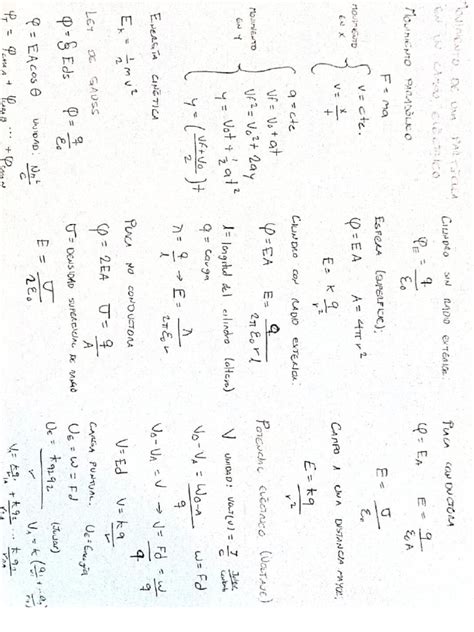 MOVIMIENTO DE UNA PARTICULA
EN UN CAMPO ELÉCTRICO
MOVIMIENTO PARABÓLICO
F = ma
MOVIMIENTO
EN X
v = cte.
v = x/t
MOVIMIENTO
EN Y
a = cte
Vf = Vo + at
Vf² = Vo² + 2ay
y = Vot + ½ at²
y = (Vf + Vo / 2) t
ENERGÍA CINÉTICA
Ek = ½ mv²
LEY DE GAUSS
φ = ∮ Eds φ = q/ε₀
φ = EA cos θ UNIDAD: Nm²/C
CILINDRO SIN RADIO EXTERIOR.
φE = q/ε₀
ESFERA (SUPERFICIE):
φ = EA A = 4πr²
E = k q/r²
CILINDRO CON RADIO EXTERIOR.
φ = EA E = q/2πε₀rl
l = longitud del cilindro (altura)
q = carga
λ = q/l → E = λ/2πε₀r
PLACA NO CONDUCTORA
φ = 2EA σ = q/A
σ = DENSIDAD SUPERFICIAL DE
E = σ/2ε₀
PLACA CONDUCTORA
φ = EA E = q/ε₀A
E = σ/ε₀
CAMPO A UNA DISTANCIA MAYOR:
E = kq/r²
POTENCIAL ELÉCTRICO (VOLTAJE)
V UNIDAD: VOLT (V) = J/C
V₀ - VA = W₀→A/q W = Fd
V₀ - VA = V → V = Fd/q = W/q
V = Ed V = kq/r
CARGA PUNTUAL. Ue = Energía
Ue = W = Fd
Ue = kq₁q₂/r (Joules)